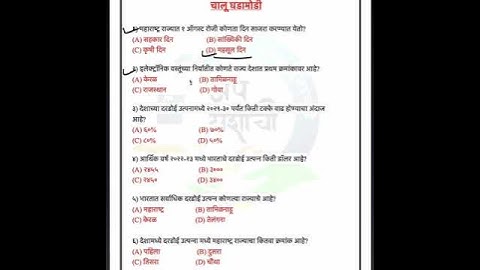 चालू घडामोडी
१) महाराष्ट्र राज्यात १ ऑगस्ट रोजी कोणता दिन साजरा करण्यात येतो?
(A) सहकार दिन (B) सांख्यिकी दिन
(C) कृषी दिन (D) महसूल दिन
२) इलेक्ट्रॉनिक वस्तूंच्या निर्यातीत कोणते राज्य देशात प्रथम क्रमांकावर आहे?
(A) केरळ (B) तामिळनाडू
(C) राजस्थान (D) गोवा
३) देशाच्या दरडोई उत्पन्नामध्ये २०२९-३० पर्यंत किती टक्के वाढ होण्याचा अंदाज
आहे?
(A) ६०% (B) ७०%
(C) ८०% (D) ५०%
४) आर्थिक वर्ष २०२२-२३ मध्ये भारताचे दरडोई उत्पन्न किती डॉलर आहे?
(A) २४५५ (B) ३०००
(C) २४५० (D) ३४००
५) भारतात सर्वाधिक दरडोई उत्पन्न कोणत्या राज्याचे आहे?
(A) महाराष्ट्र (B) तामिळनाडू
(C) केरळ (D) तेलंगणा
६) देशामध्ये दरडोई उत्पन्ना मध्ये महाराष्ट्र राज्याचा कितवा क्रमांक आहे?
(A) पहिला (B) दुसरा
(C) तिसरा (D) चौथा